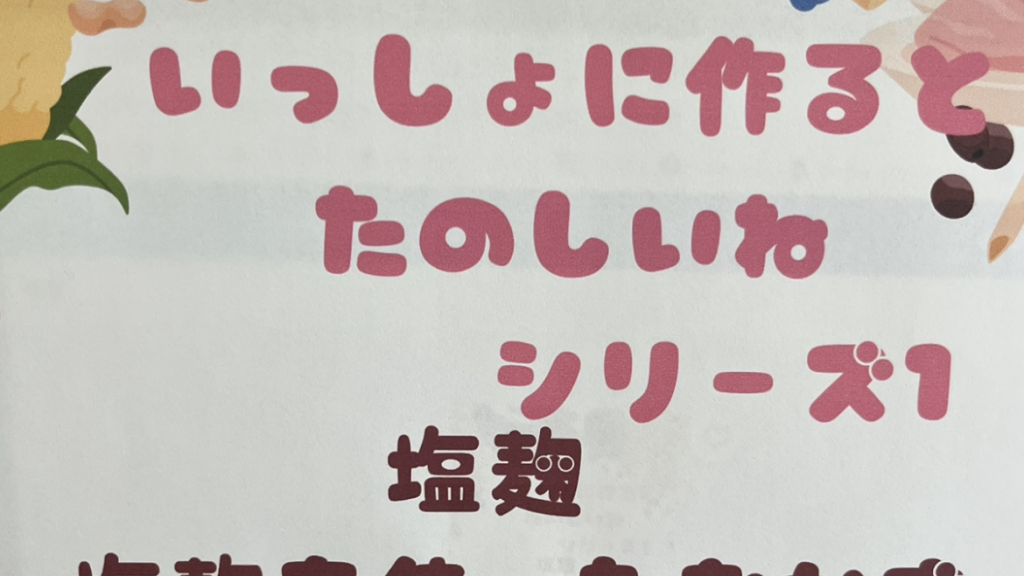 いっしょに作ると
たのしいね
シリーズ1
塩麹